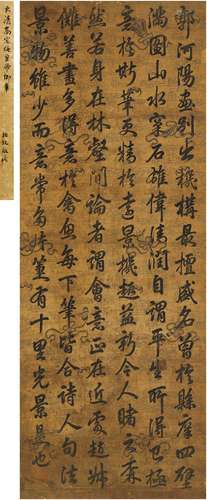 郭河陽畫別出機構最擅盛名曾於縣廨四壁
滿圖山水窠石雄偉清潤自謂平生所得已極
於妙筆更精於遠景擺益新令人睹之森
然若身在林壑間論者謂會意正在近處趙叔
儺善畫多得意於禽魚每下筆皆合詩人句法
景物雖少而意常多有十里光景是也
大清高宗純皇帝御筆